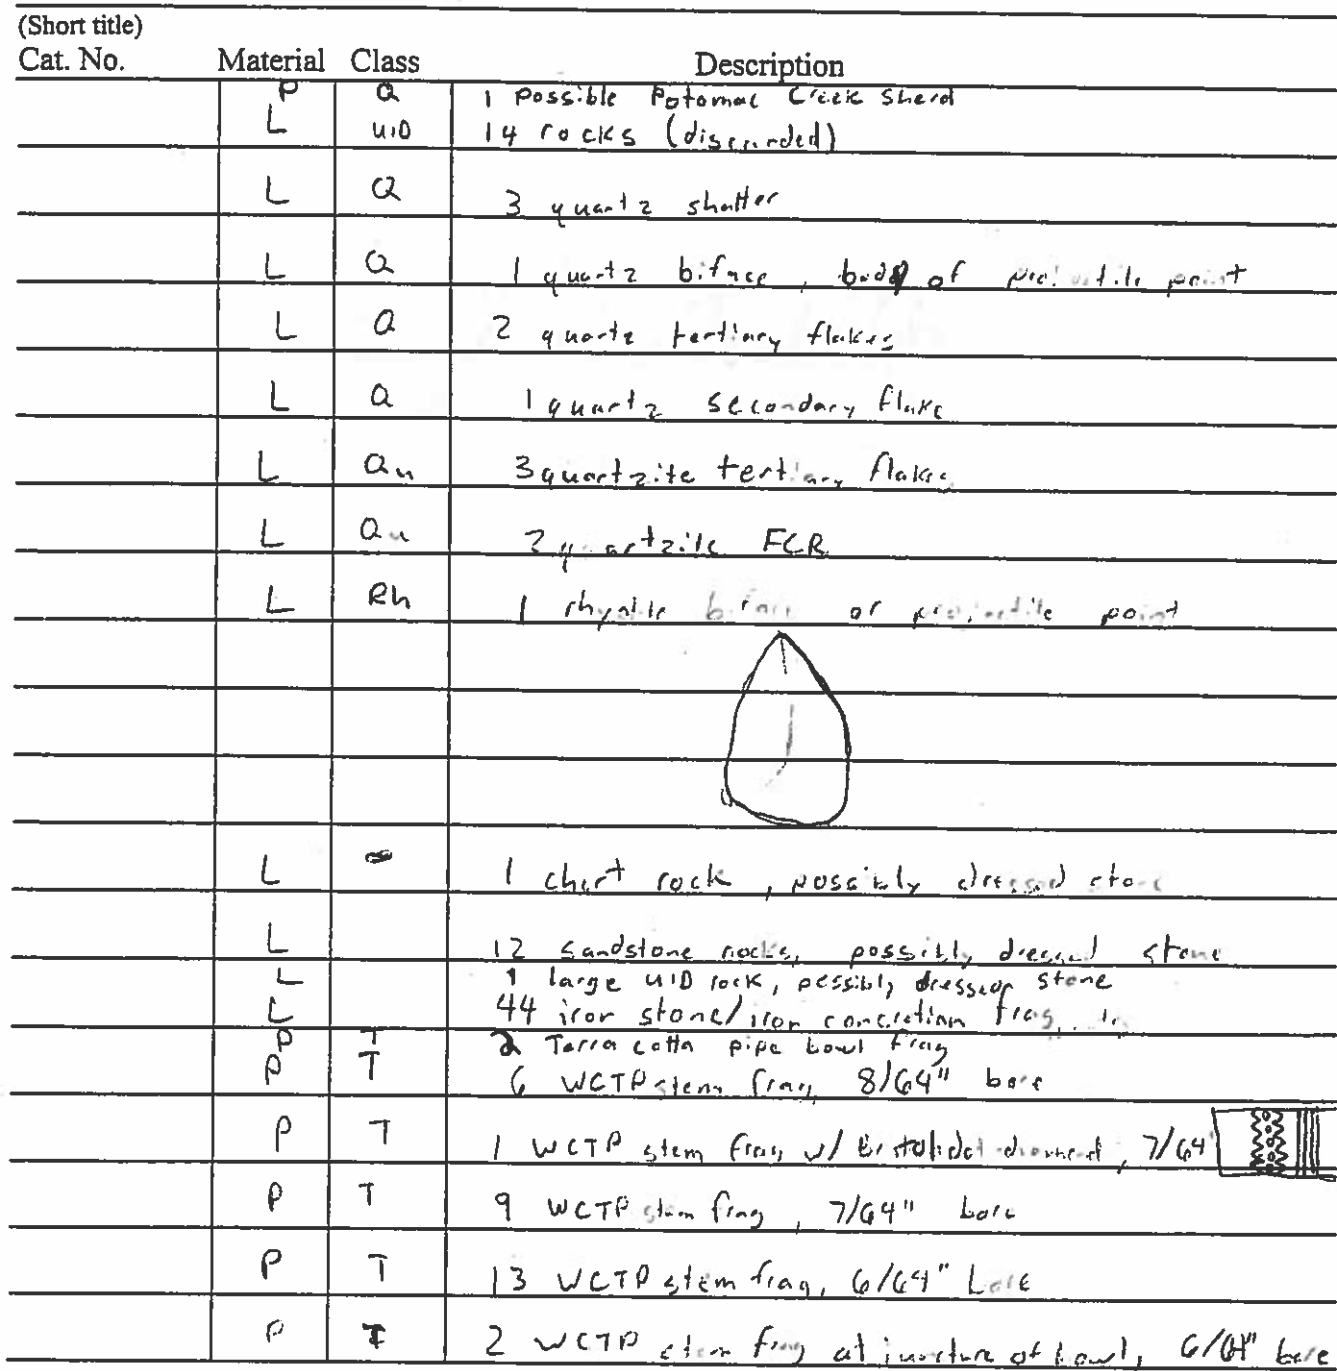 (Short title)
Cat. No. Material Class Description
P Q 1 Possible Potomac Creek Sherd
L UID 14 rocks (discarded)
L Q 3 quartz shatter
L Q 1 quartz biface, body of projectile point
L Q 2 quartz tertiary flakes
L Q 1 quartz secondary flake
L Qu 3 quartzite tertiary flakes
L Qu quartzite FCR
L Rh 1 rhyolite biface or projectile point
L 1 chert rock, possibly dressed stone
L 12 sandstone rocks, possibly dressed stone
L 1 large UID rock, possibly dressed stone
L 44 iron stone/iron concretion frag
P T 2 Terra cotta pipe bowl frag
P T 6 WCTP stem frag, 8/64" bore
P T 1 WCTP stem frag w/ Bristol dot diamond, 7/64"
P T 9 WCTP stem frag, 7/64" bore
P T 13 WCTP stem frag, 6/64" bore
P T 2 WCTP stem frag at juncture of bowl, 6/64" bore